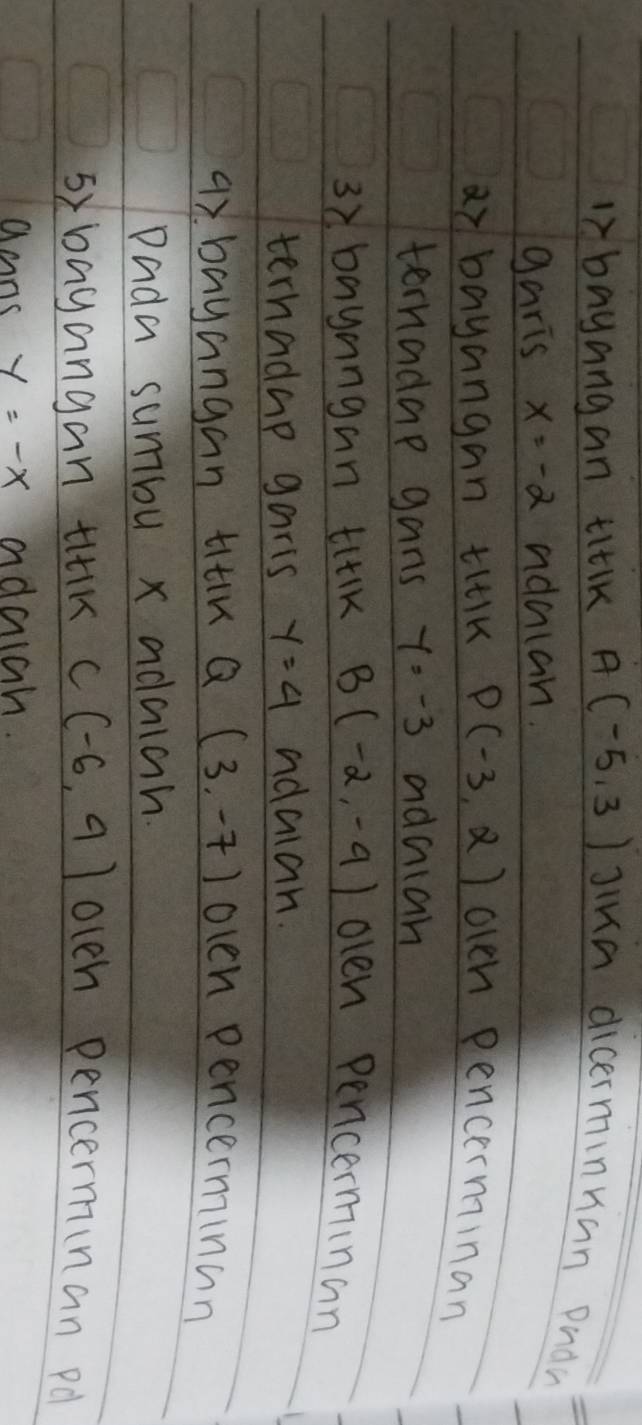 1). bayangan titik A (-5, 3) Jika dicerminkan pada
garis x = -2 adalah.
2). bayangan titik P(-3, 2) oleh pencerminan
terhadap garis Y = -3 adalah
3). bayangan titik B (-2, -4) oleh pencerminan
terhadap garis Y = 4 adalah.
4). bayangan titik Q (3, -7) oleh pencerminan
pada sumbu x adalah.
5). bayangan titik C (-6, 4) oleh pencerminan pd
garis Y = -x adalah.